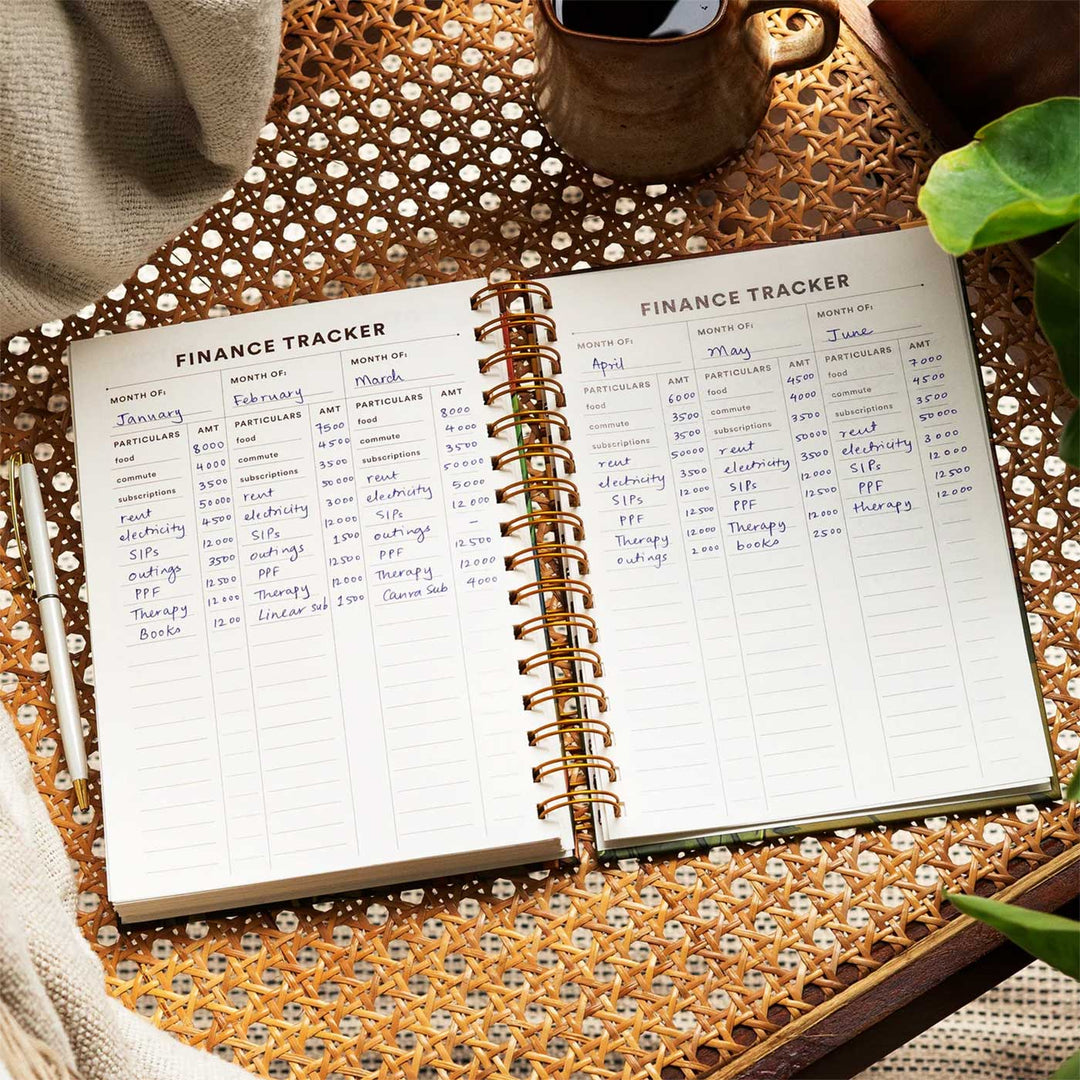 FINANCE TRACKER
MONTH OF:
January
PARTICULARS AMT
food 8000
commute 4000
subscriptions 3500
rent 50000
electricity 4500
SIPs 12000
outings 3500
PPF 12500
Therapy 12000
Books 1200
MONTH OF:
February
PARTICULARS AMT
food 7500
commute 4500
subscriptions 3500
rent 50000
electricity 3000
SIPs 12000
outings 1500
PPF 12500
Therapy 12000
Linear sub 1500
MONTH OF:
March
PARTICULARS AMT
food 8000
commute 4000
subscriptions 3500
rent 50000
electricity 5000
SIPs 12000
outings –
PPF 12500
Therapy 12000
Canva Sub 4000
FINANCE TRACKER
MONTH OF:
April
PARTICULARS AMT
food 6000
commute 3500
subscriptions 3500
rent 50000
electricity 3500
SIPs 12000
PPF 12500
Therapy 12000
outings 2000
MONTH OF:
May
PARTICULARS AMT
food 4500
commute 4000
subscriptions 3500
rent 50000
electricity 3500
SIPs 12000
PPF 12500
Therapy 12000
books 2500
MONTH OF:
June
PARTICULARS AMT
food 7000
commute 4500
subscriptions 3500
rent 50000
electricity 3000
SIPs 12000
PPF 12500
therapy 12000